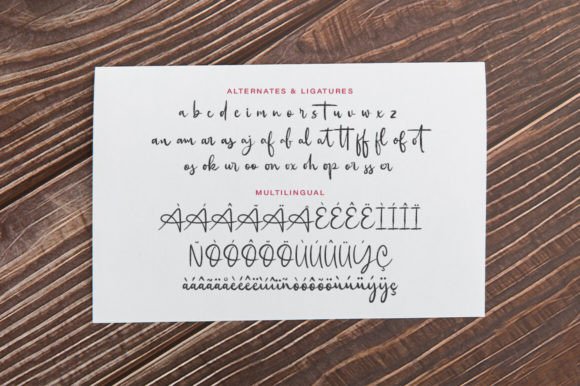 ALTERNATES & LIGATURES
a b c d e i m n o r s t u v w x z
an am ar as aj af ab al at tt ff fl of ot
os ok ur oo on ox oh op or ss er
MULTILINGUAL
ÀÁÂÃÄÅÈÉÊËÌÍÎÏ
ÑÒÓÔÕÖÙÚÛÜÝÇ
àáâãäåèéêëìíîïñòóôõöùúûüýÿç